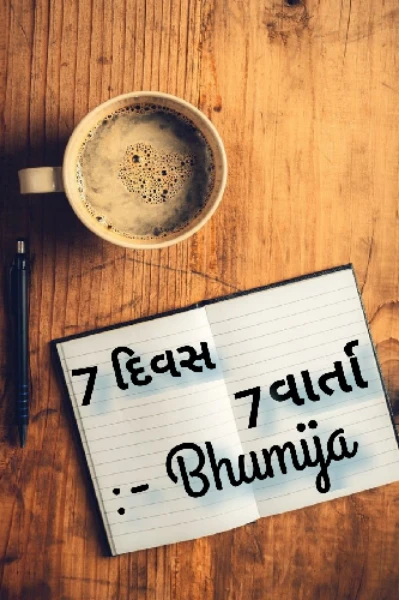 7 દિવસ
7 વાર્તા
:- Bhumija